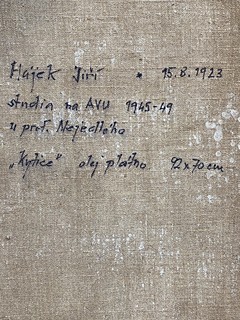 Hájek Jiří * 15.8.1923
studia na AVU 1945-49
u prof. Nejedlého
„Kytice" olej plátno 92x70cm